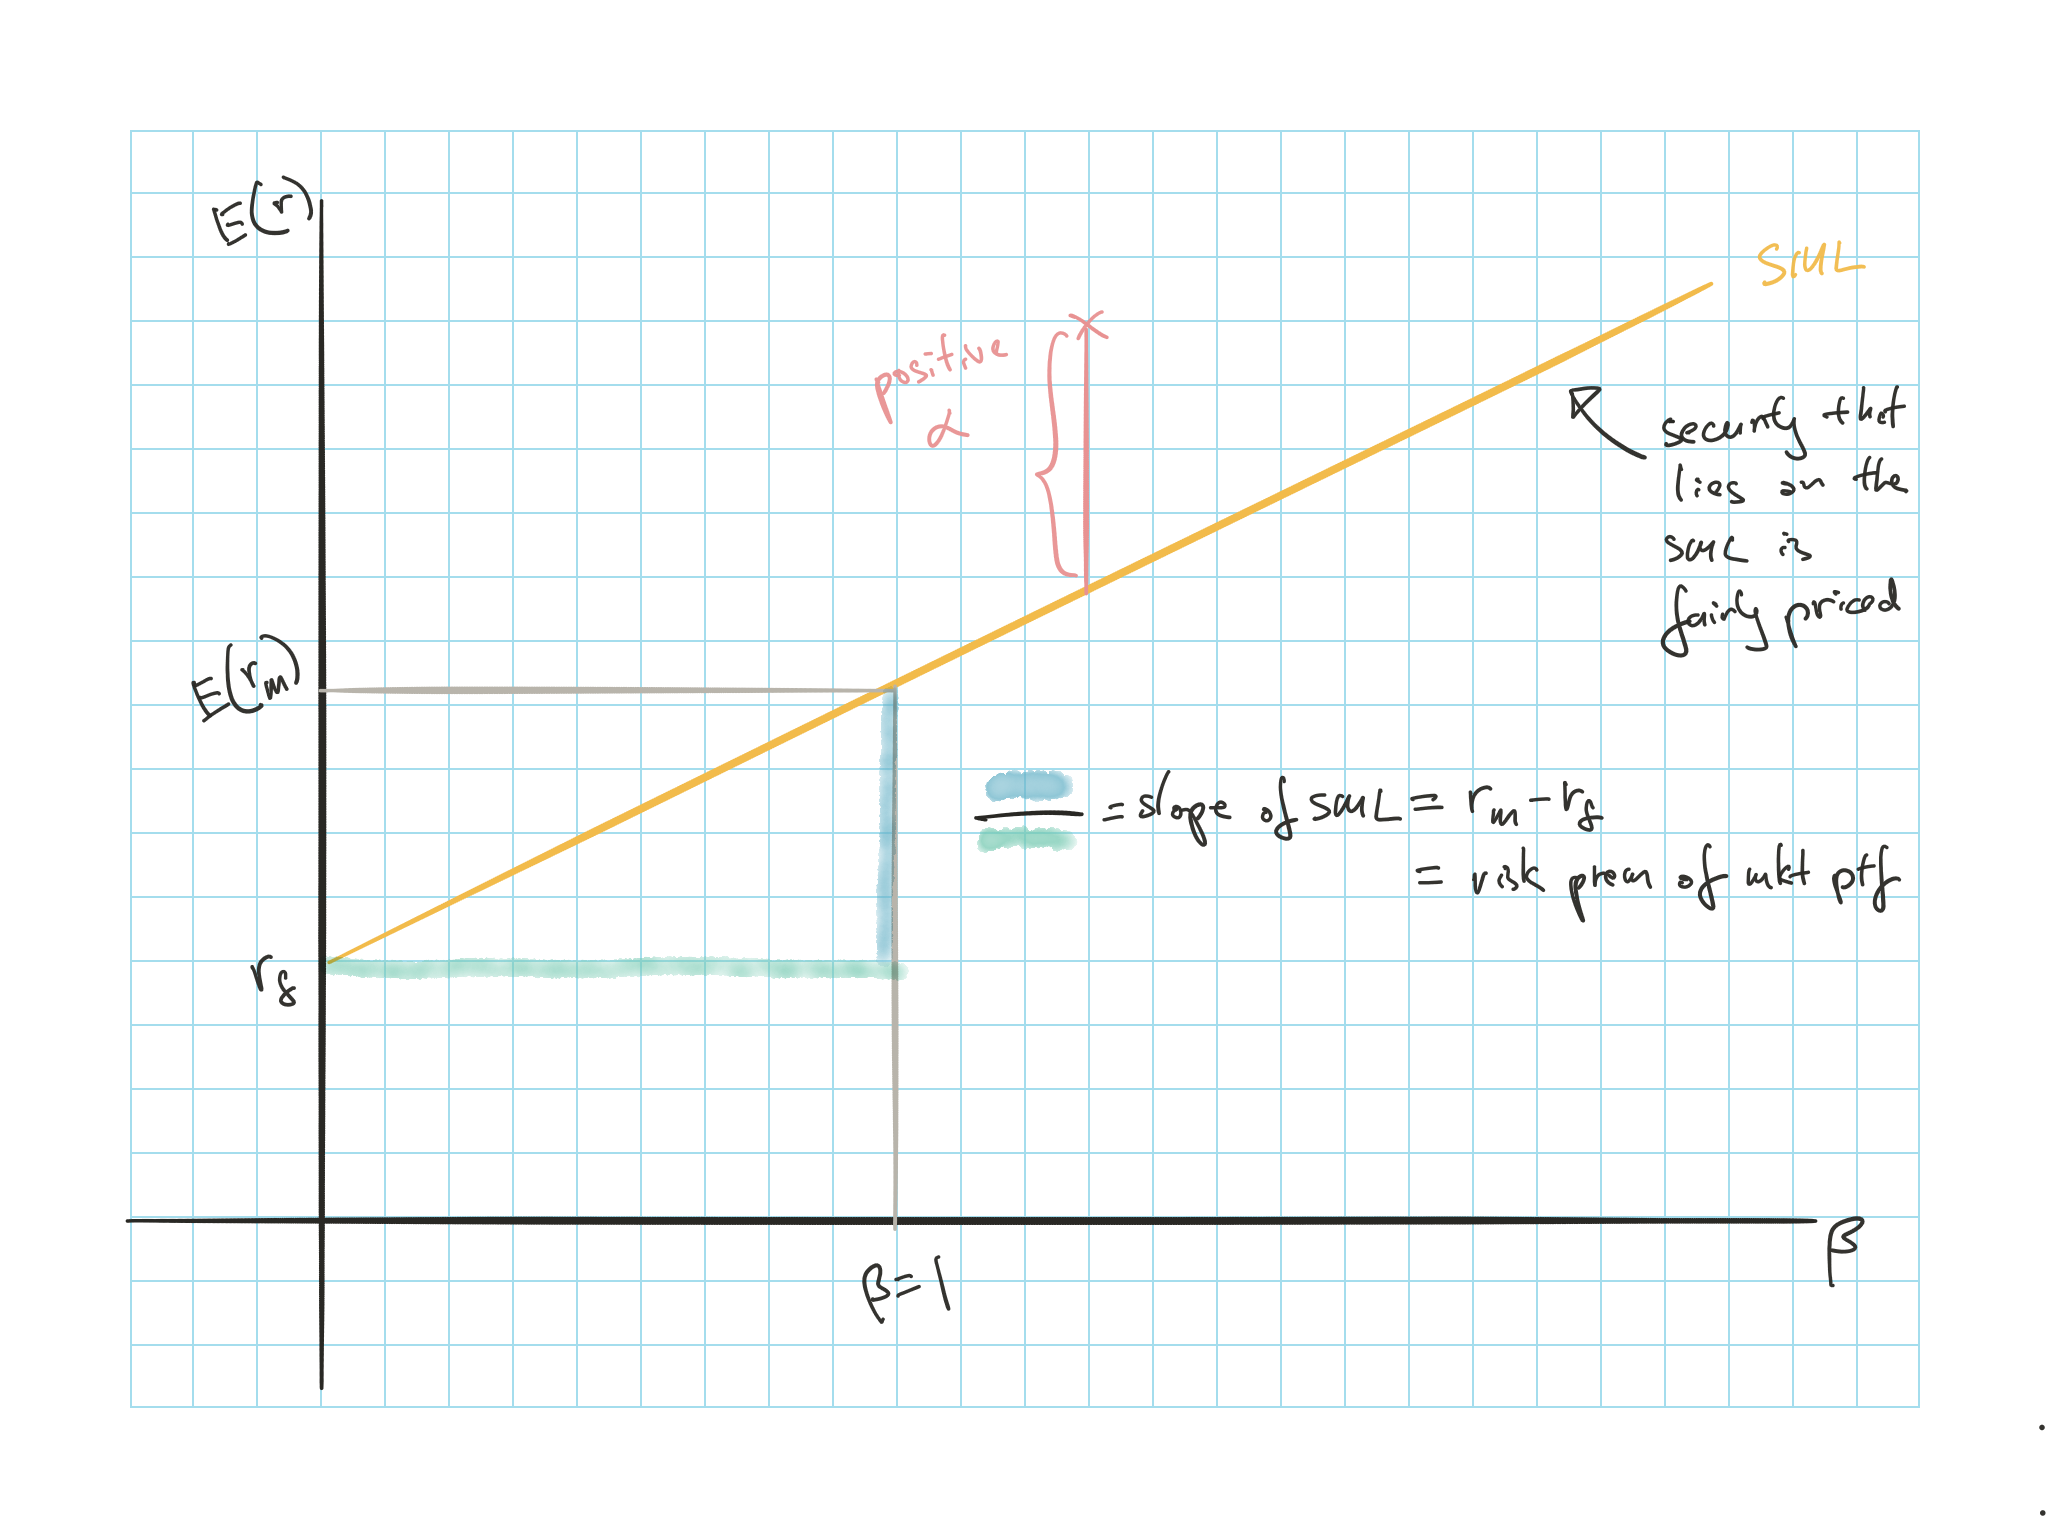 E(r)
SML
positive
α
security that
lies on the
SML is
fairly priced
E(rm)
= slope of SML = rm - rf
= risk prem of mkt ptf
rf
β
β=1